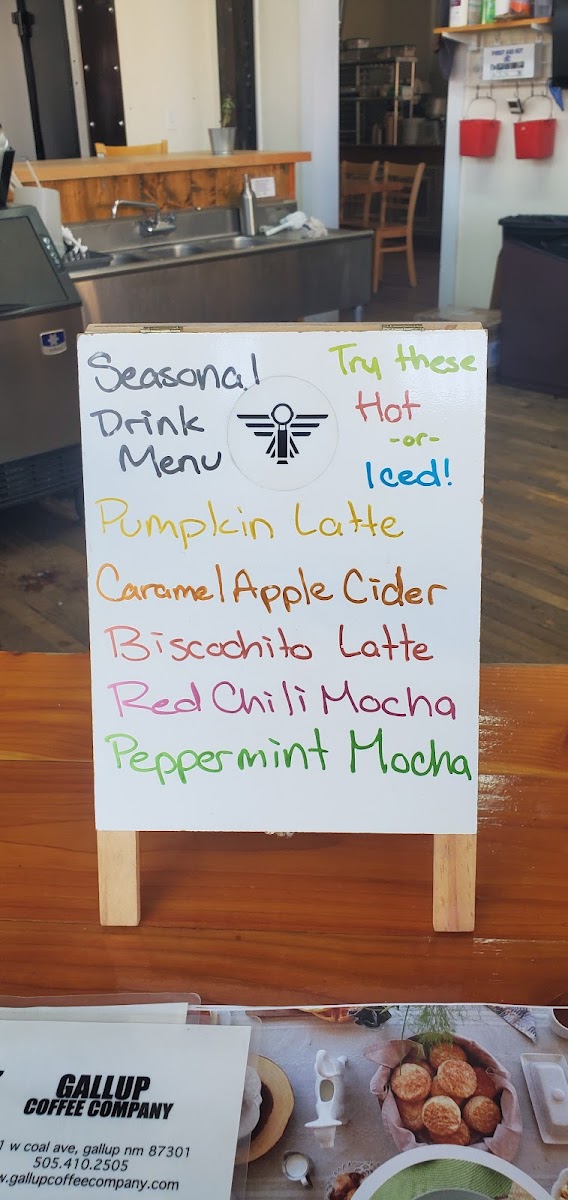 Seasonal
Drink
Menu
Try these
Hot
-or-
Iced!
Pumpkin Latte
Caramel Apple Cider
Biscochito Latte
Red Chili Mocha
Peppermint Mocha
GALLUP
COFFEE COMPANY
1 w coal ave, gallup nm 87301
505.410.2505
w.gallupcoffeecompany.com